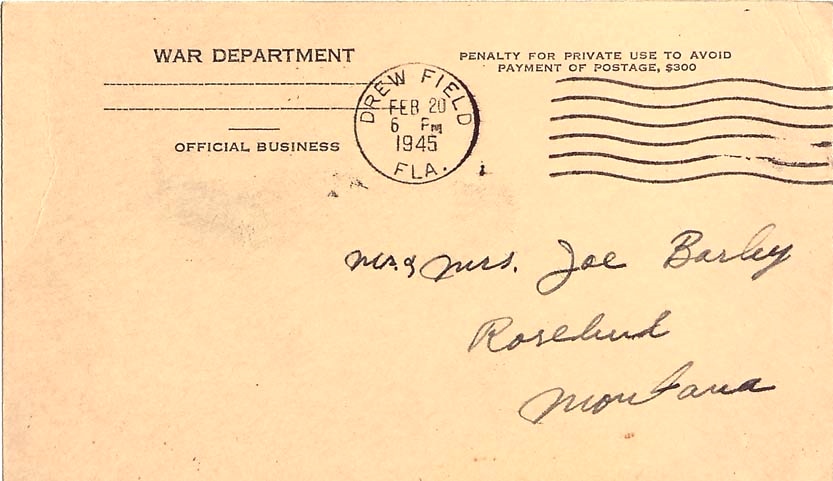 WAR DEPARTMENT
OFFICIAL BUSINESS
PENALTY FOR PRIVATE USE TO AVOID
PAYMENT OF POSTAGE, $300
DREW FIELD
FEB 20
6 PM
1945
FLA.
Mr. & Mrs. Joe Barley
Rosebud
Montana